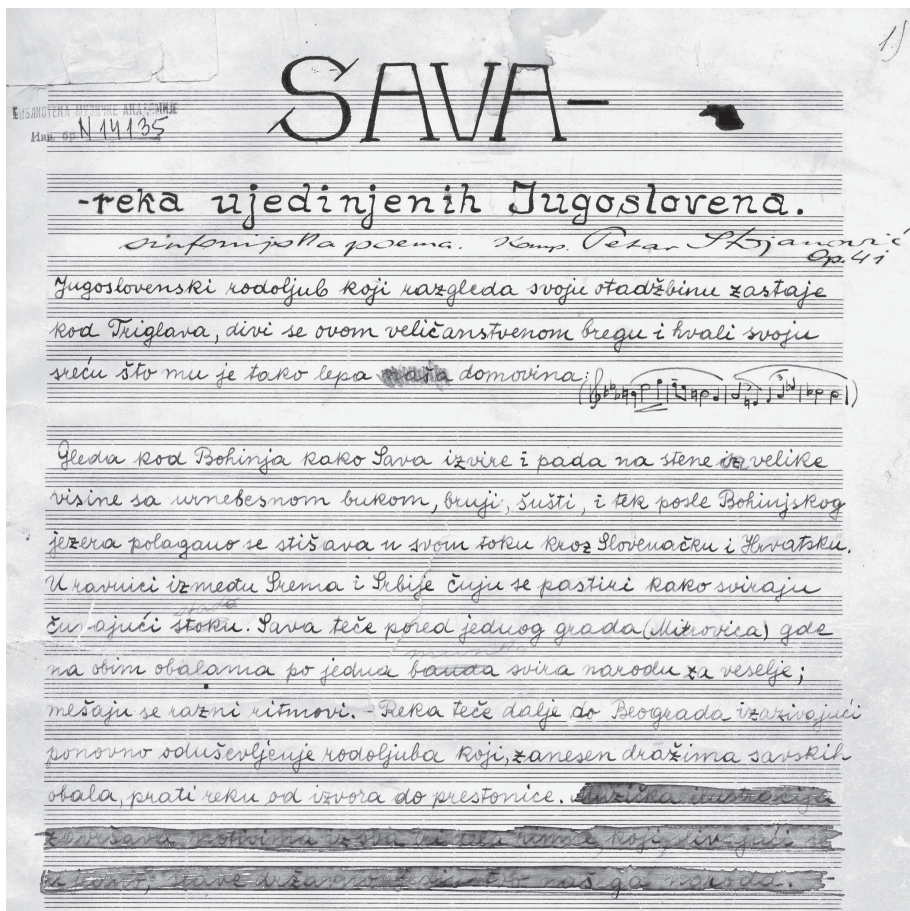 15
SAVA-
БИБЛИОТЕКА МУЗИЧКЕ АКАДЕМИЈЕ
Инв. бр. N 14135
-reka ujedinjenih Jugoslovena.
sinfonijska poema. Komp. Petar Stojanović
Op. 41
Jugoslovenski rodoljub koji razgleda svoju otadžbinu zastaje
kod Triglava, divi se ovom veličanstvenom bregu i hvali svoju
sreću što mu je tako lepa naša domovina;
Gleda kod Bohinja kako Sava izvire i pada na stene iz velike
visine sa urnebesnom bukom, bruji, šušti, i tek posle Bohinjskog
jezera polagano se stišava u svom toku kroz Slovenačku i Hrvatsku.
U ravnici između Srema i Srbije čuju se pastiri kako sviraju
stada
čuvajući stoku. Sava teče pored jednog grada (Mitrovica) gde
muzika
na obim obalama po jedna banda svira narodu za veselje;
mešaju se razni ritmovi. - Reka teče dalje do Beograda izazivajući
ponovno oduševljenje rodoljuba koji, zanesen dražima savskih
obala, prati reku od izvora do prestonice. Muzička ilustracija
završava motivima koji
državno naroda.